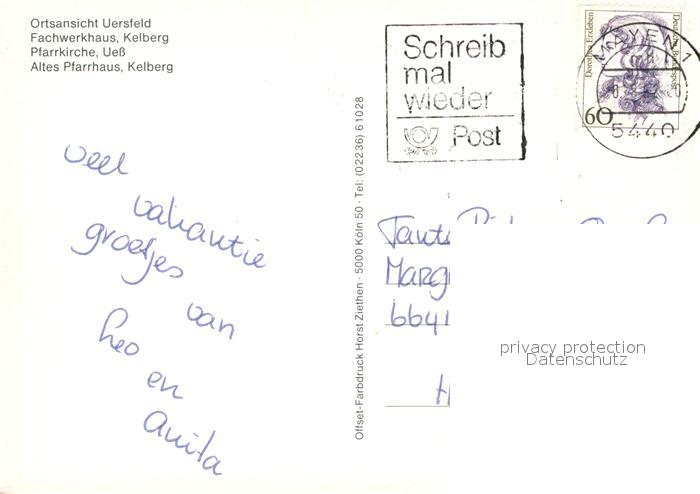 Ortsansicht Uersfeld
Fachwerkhaus, Kelberg
Pfarrkirche, Ueß
Altes Pfarrhaus, Kelberg
Schreib
mal
wieder
Post
Dorothea Erxleben
Deutsche Bundespost
60
MAYEN 1
5440
veel
vakantie
groetjes
van
Leo
en
Anita
Offset-Farbdruck Horst Ziethen · 5000 Köln 50 · Tel: (02236) 61028
Tant
Marg
6641
H
privacy protection
Datenschutz